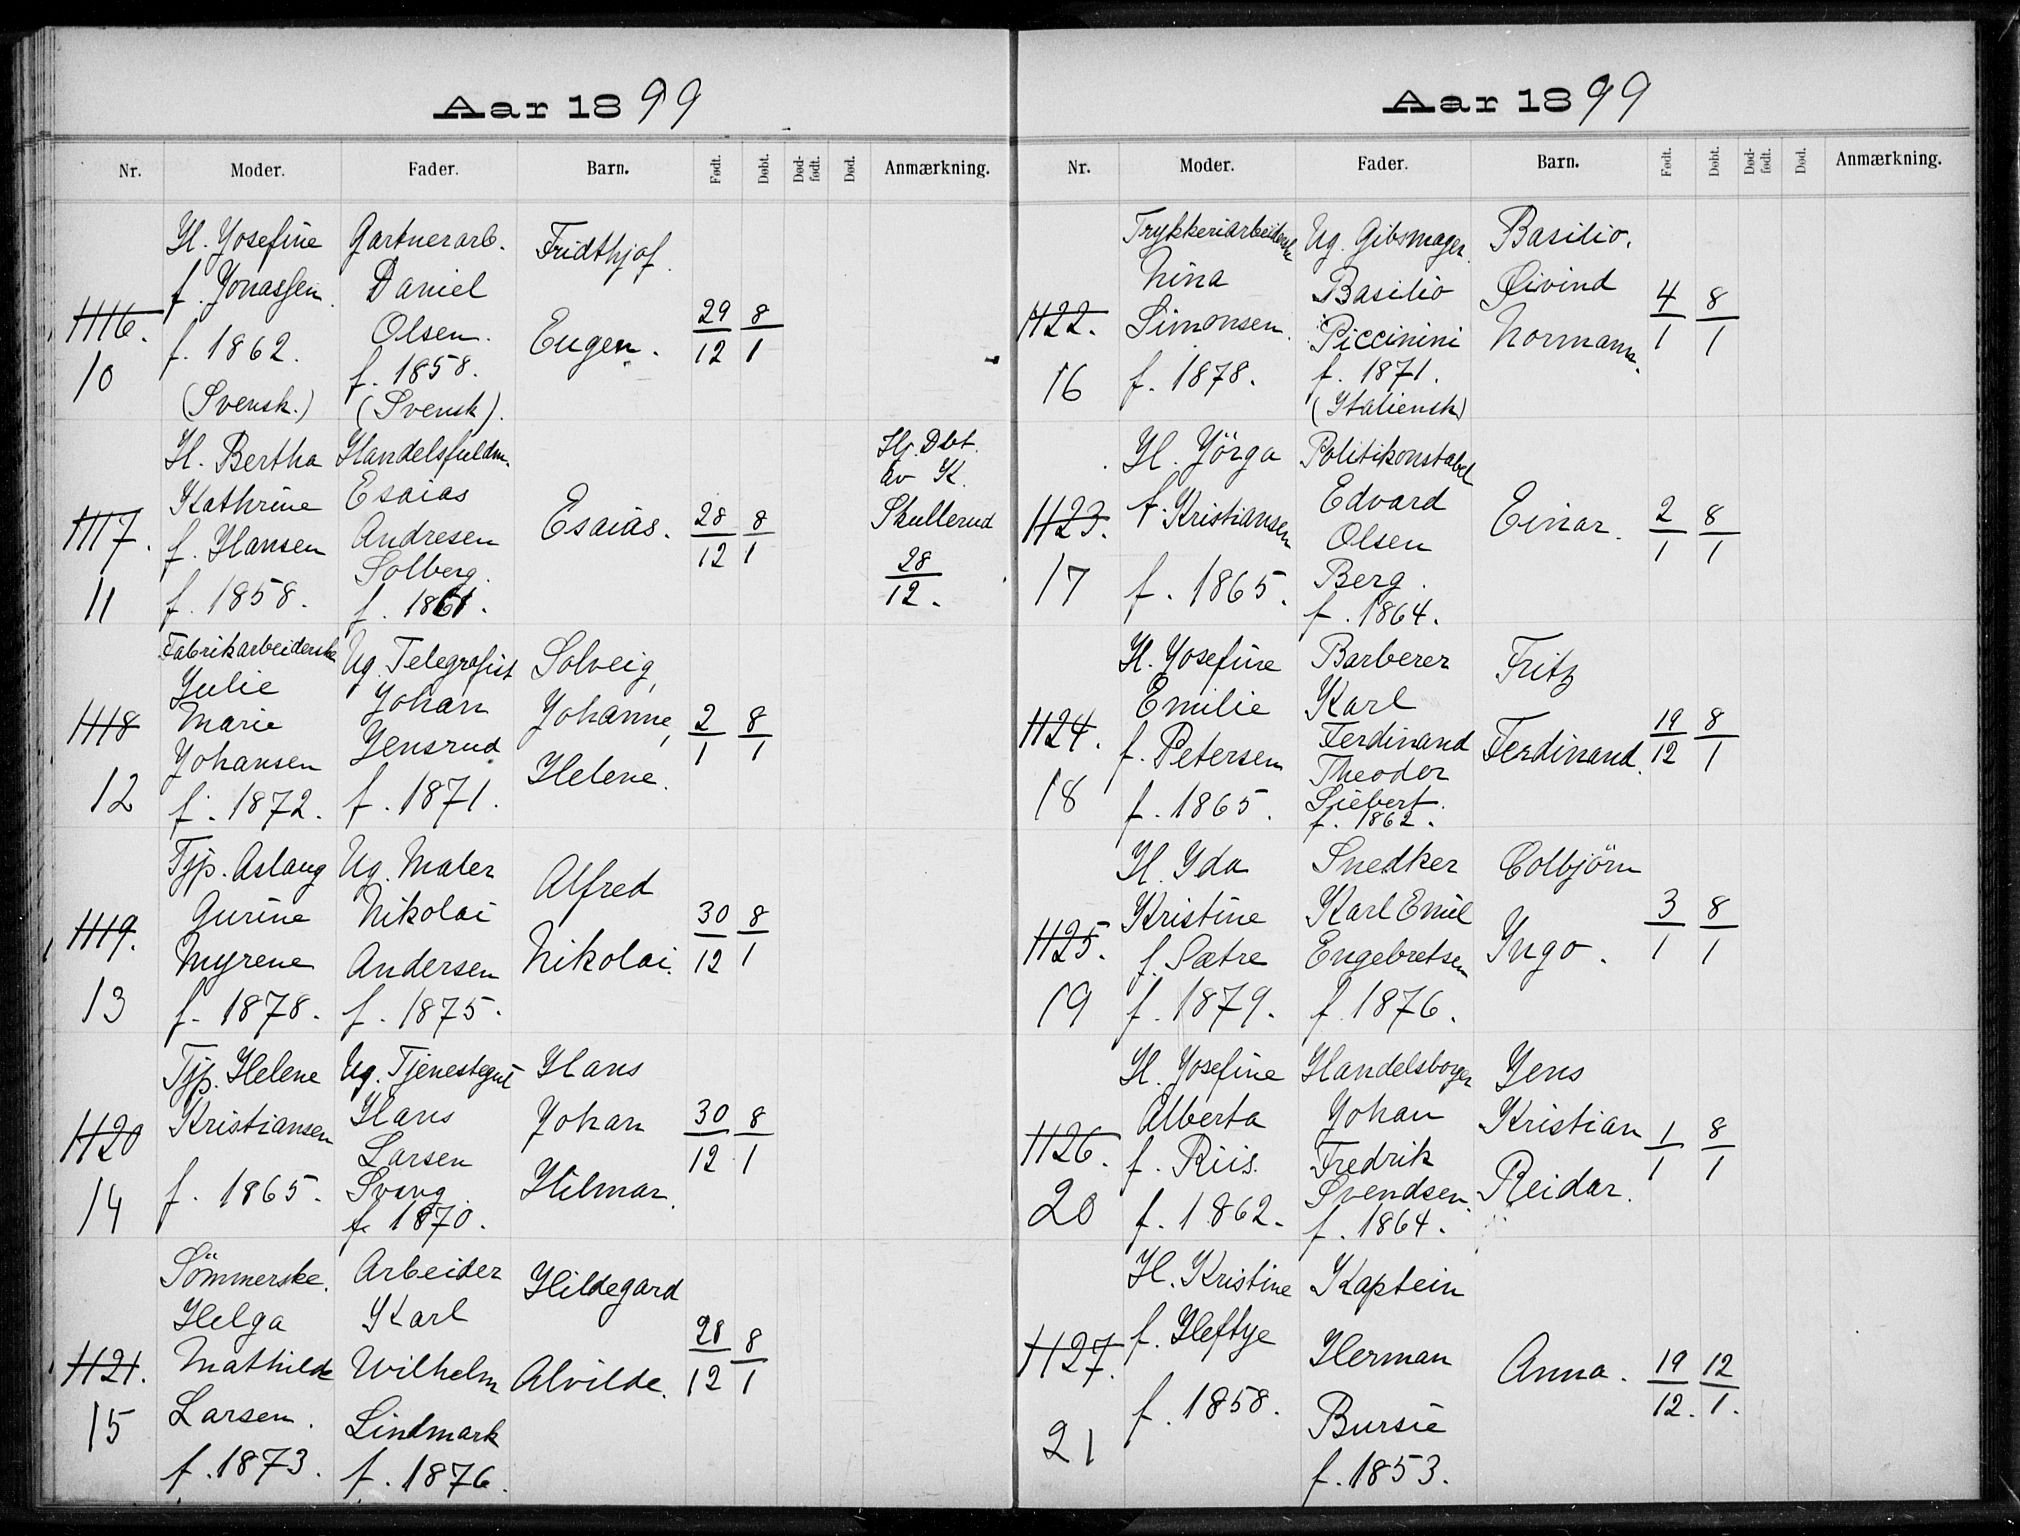 Aar 1899
Nr. Moder. Fader. Barn. Født. Døbt. Død-født. Død. Anmærkning.
H. Josefine Gartnerarb. Fridthjof
f. Jonassen Daniel
1116. Olsen. Eugen. 29/12 8/1
10 f. 1862. f. 1858.
(Svensk.) (Svensk).
H. Bertha Handelsfuldm. Hj. Dbt.
Kathrine Esaias av K.
1117. f. Hansen Andresen Esaias. 28/12 8/1 Skullerud
Solberg. 28/12.
11 f. 1858. f. 1861.
Fabrikarbeiderske Ug. Telegrafist Solveig,
Julie Johan Johanne,
1118 Marie Jensrud 2/1 8/1
Johansen Helene.
12 f. 1872. f. 1871.
Tjp. Aslaug Ug. Maler Alfred
Gurine Nikolai
1119. Myrene Andersen Nikolai. 30/12 8/1
13 f. 1878. f. 1875.
Tjp. Helene Ug. Tjenestegut Hans
Kristiansen Hans Johan
1120 Larsen 30/12 8/1
f. 1865. Svang. Hilmar.
14 f. 1870.
Sömmerske. Arbeider Hildegard
Helga Karl
1121. Mathilde Wilhelm Alvilde. 28/12 8/1
15 Larsen. Lindmark
f. 1873. f. 1876.
Aar 1899
Nr. Moder. Fader. Barn. Født. Døbt. Død-født. Død. Anmærkning.
Trykkeriarbeiderske Ug. Gibsmager. Basilio,
Nina Basilio Øivind
1122. Simonsen. Piccinini Normann. 4/1 8/1
16 f. 1878. f. 1871.
(Italiensk)
H. Jörga Politikonstabel
f. Kristiansen Edvard
1123. Olsen Einar. 2/1 8/1
17 f. 1865. Berg.
f. 1864.
H. Josefine Barberer Fritz
Emilie Karl
1124. f. Petersen Ferdinand Ferdinand. 19/12 8/1
Theodor
18 f. 1865. Siebert.
f. 1862.
H. Ida Snedker Colbjörn
Kristine Karl Emil
1125. f. Sætre Engebretsen Ingo. 3/1 8/1
19 f. 1879. f. 1876.
H. Josefine Handelsborger Jens
Alberta Johan Kristian
1126. f. Riis. Fredrik 1/1 8/1
20 Svendsen. Reidar.
f. 1862. f. 1864.
H. Kristine Kaptein
1127. f. Heftye Herman Anna. 19/12. 12/1.
f. 1858. Bursie
21 f. 1853.